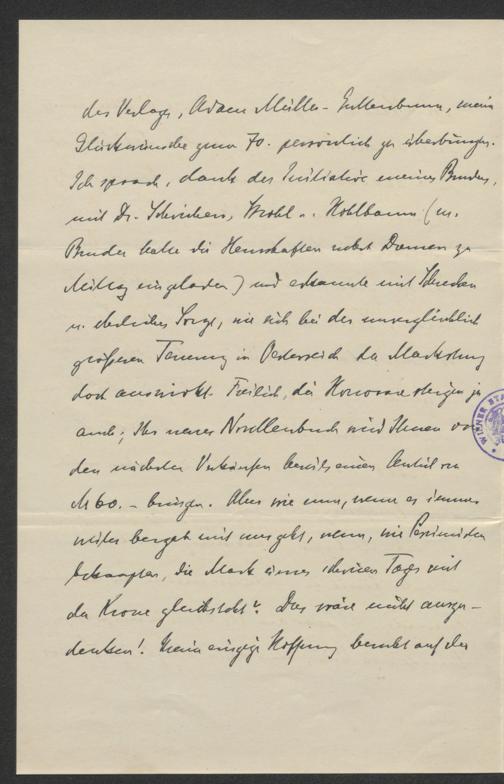 des Verlages, Adam Müller-Guttenbrunn, mein
Glückwünsche zum 70. persönlich zu überbringen.
Ich sprach, dank der Initiative meines Bruders,
mit Dr. Strobl u. Hohlbaum (m.
Bruder hatte die Herrschaften nebst Damen zu
Mittag eingeladen) und erkannte mit Schrecken
u. ehrlicher Sorge, wie sich bei der unvergleichlich
größeren Teuerung in Oesterreich der Marksturz
dort auswirkt. Freilich, die Honorare steigen ja
auch; Ihr neues Novellenbuch wird Ihnen von
den nächsten Verkäufen bereits einen Anteil von
M 60.- bringen. Aber wie nun, wenn es immer
weiter bergab mit uns geht, wenn, wie Pessimisten
behaupten, die Mark eines schönen Tages mit
der Krone gleichsteht? Das wäre nicht auszu-
denken! Meine einzige Hoffnung beruht auf der
WIENER